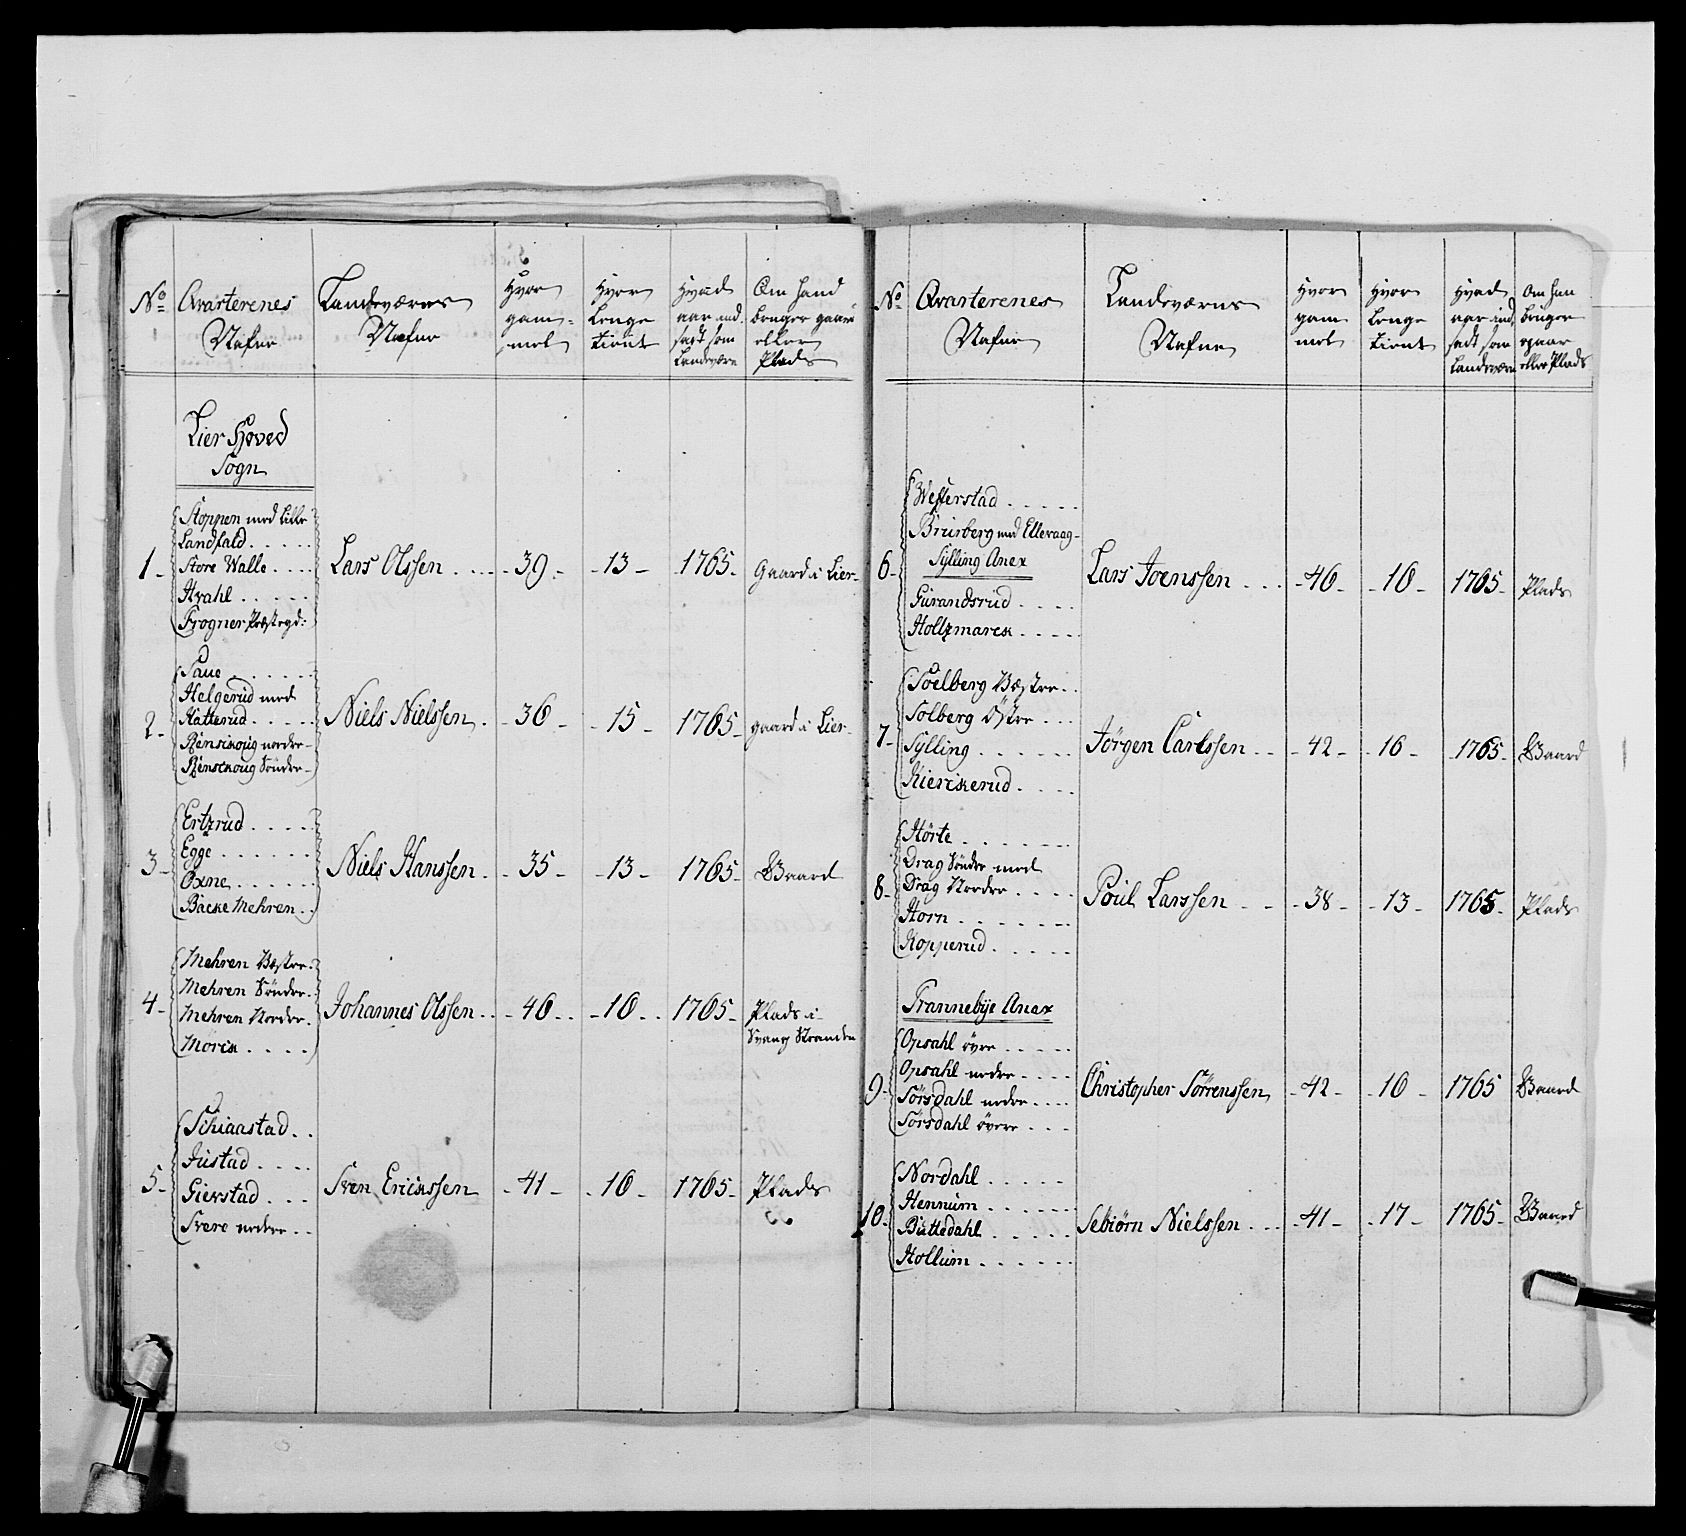 No
Qvarterenes
Nafne
Landeværns
Nafne
Hvor
gam=
mel
Hvor
Lenge
tient
Hvad
aar ind
sadt som
Landeværn
Om hand
bruger gaar
eller
Plads
Lier Hoved
Sogn
1-
Stoppen med Lille
Landfald.....
Store Walle....
Hvahl.....
Frogner Præstegd:
Lars Olssen....
-39-
-13-
1765-
Gaard i Lier-
2-
Saue......
Helgerud med
Hatterud.....
Rënskoug nordre-
Rënskoug Søndre-
Niels Nielssen.
-36-
-15-
1765-
gaard i Lier-
3-
Ertzrud.....
Egge......
Oxne......
Backe Mehren..
Niels Hanssen.
-35-
-13-
1765-
Gaard
4-
Mehren Vestre.
Mehren Søndre.
Mehren Nordre.
Morck....
Johannes Olssen..
-40..
-10..
1765-
Plads i
Svang Stranden
5-
Schiaastad..
Justad....
Gierstad...
Svere nedre..
Sven Erickssen
-41-
-10-
1765-
Plads
No
Qvarterenes
Nafne
Landeværns
Nafne
Hvor
gam
mel
Hvor
Lenge
tient
Hvad
aar ind
sadt som
Landeværn
Om han
bruger
gaar
eller Plads
6-
Westerstad.....
Brusberg med Elleraag-
Sylling Anex
Gurandsrud....
Holtzmarck....
Lars Joenssen...
-46-
-10-
1765-
Plads
7-
Soelberg Vestre..
Solberg Østre...
Sylling......
Kierckerud....
Jörgen Carlssen..
-42-
-16-
1765-
Gaard
8-
Hörte......
Drag Søndre med
Drag Nordre....
Horn......
Kopperud.....
Poul Larssen..
-38-
-13-
1765-
Plads
Trannebÿe Anex
9-
Opsahl övre.....
Opsahl nedre....
Sörsdahl nedre....
Sörsdahl övere...
Christopher Sörrenssen
-42-
-10-
1765
Gaard
10-
Nordahl.....
Hennum......
Buttedahl.....
Hollum......
Sebiörn Nielssen...
-41-
-17-
1765-
Gaard